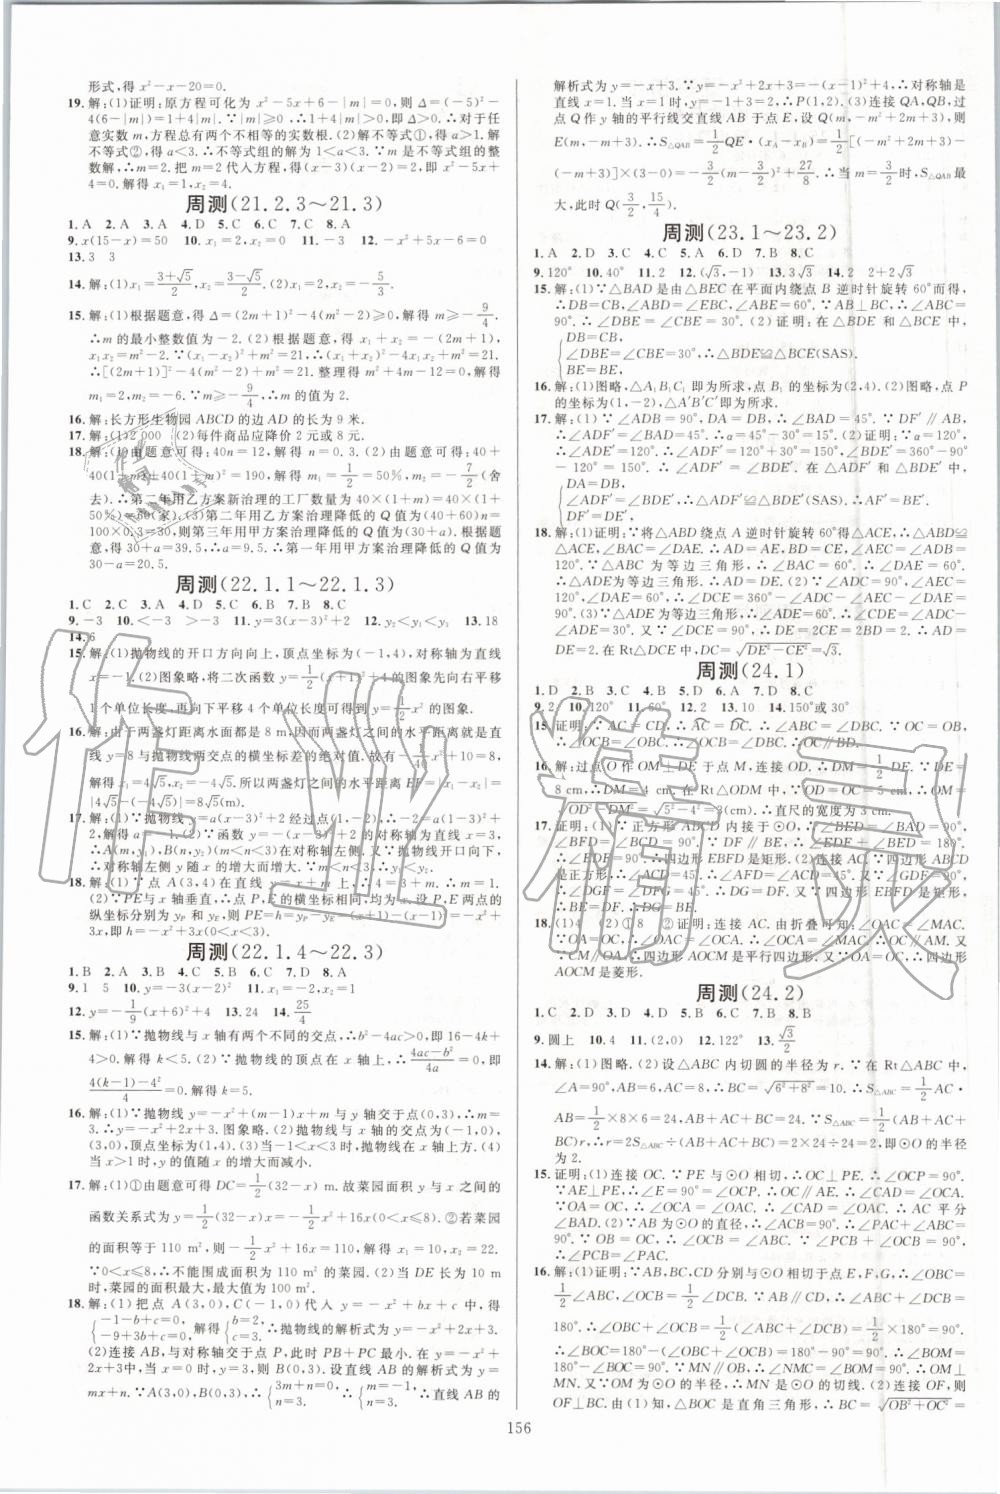 形式,得 x²-x-20=0.
19. 解:(1)证明:原方程可化为 x²-5x+6-|m|=0,则 Δ=(-5)²-
4(6-|m|)=1+4|m|.∵|m|≥0,∴1+4|m|>0,即 Δ>0.∴对于任
意实数 m,方程总有两个不相等的实数根.(2)解不等式①,得 a>1.解
不等式②,得 a<3.∴不等式组的解为 1<a<3.∵m 是不等式组的整
数解,∴m=2.把 m=2 代入方程,得(x-3)(x-2)=2,即 x²-5x+
4=0.解得 x₁=1,x₂=4.
周测(21.2.3~21.3)
1. A 2. A 3. A 4. D 5. C 6. C 7. D 8. C
9. x(15-x)=50 10. x₁=2,x₂=0 11. -3 12. -x²+5x-6=0
13. 3 3
14. 解:(1)x₁=(3+√5)/2,x₂=(3-√5)/2.(2)x₁=2,x₂=-5/3.
15. 解:(1)根据题意,得 Δ=(2m+1)²-4(m²-2)≥0.解得 m≥-9/4.
∴m 的最小整数值为-2.(2)根据题意,得 x₁+x₂=-(2m+1),
x₁x₂=m²-2.∵(x₁-x₂)²+m²=21,∴(x₁+x₂)²-4x₁x₂+m²=21.
∴[-(2m+1)]²-4(m²-2)+m²=21.整理得 m²+4m-12=0.解得
m₁=2,m₂=-6.∵m≥-9/4,∴m 的值为 2.
16. 解:长方形生物园 ABCD 的边 AD 的长为 9 米.
17. 解:(1)2 000 (2)每件商品应降价 2 元或 8 元.
18. 解:(1)由题意可得:40n=12,解得 n=0.3.(2)由题意可得:40+
40(1+m)+40(1+m)²=190,解得 m₁=1/2=50%,m₂=-7/2(舍
去).∴第二年用乙方案新治理的工厂数量为 40×(1+m)=40×(1+
50%)=60(家).(3)第二年用乙方案治理降低的 Q 值为(40+60)n=
100×0.3=30,则第三年用甲方案治理降低的 Q 值为 39.5,根据题
意,得 30+a=39.5,∴a=9.5.∴第一年用甲方案治理降低的 Q 值为
30-a=20.5.
周测(22.1.1~22.1.3)
1. C 2. C 3. A 4. D 5. C 6. B 7. B 8. C
9. -3 10. <-3 >-3 11. y=3(x-3)²+2 12. y₂<y₁<y₃ 13. 18
14. 6
15. 解:(1)抛物线的开口方向向上,顶点坐标为(-1,4),对称轴为直线
x=-1.(2)图象略,将二次函数 y=1/2(x+1)²+4 的图象先向右平移
1 个单位长度,再向下平移 4 个单位长度可得到 y=1/2x² 的图象.
16. 解:由于两盏灯距离水面都是 8 m,因而两盏灯之间的水平距离就是直
线 y=8 与抛物线两交点的横坐标差的绝对值.故有-1/40x²+10=8,
解得 x₁=4√5,x₂=-4√5.所以两盏灯之间的水平距离 EF=|x₁-x₂|=
|4√5-(-4√5)|=8√5(m).
17. 解:(1)∵抛物线 y=a(x-3)²+2 经过点(1,-2),∴-2=a(1-3)²+
2.∴a=-1.(2)∵函数 y=-(x-3)²+2 的对称轴为直线 x=3,
∴A(m,y₁),B(n,y₂)(m<n<3)在对称轴左侧.又∵抛物线开口向下,
∴对称轴左侧 y 随 x 的增大而增大.∵m<n<3,∴y₁<y₂.
18. 解:(1)∵点 A(3,4)在直线 y=x+m 上,∴4=3+m.∴m=1.
(2)∵PE 与 x 轴垂直,∴P,E 两点的横坐标相同,均为 x.设 P,E 两点的
纵坐标分别为 yP 和 yE,则 PE=h=yP-yE=(x+1)-(x-1)²=-x²+
3x,即 h=-x²+3x(0<x<3).
周测(22.1.4~22.3)
1. B 2. A 3. B 4. C 5. D 6. B 7. D 8. A
9. 1 5 10. y=-3(x-2)² 11. x₁=3,x₂=1
12. y=-1/9(x+6)²+4 13. 24 14. 25/4
15. 解:(1)∵抛物线与 x 轴有两个不同的交点,∴b²-4ac>0,即 16-4k+
4>0.解得 k<5.(2)∵抛物线的顶点在 x 轴上,∴(4ac-b²)/4a=0,即
(4(k-1)-4²)/4=0.解得 k=5.
16. 解:(1)∵抛物线 y=-x²+(m-1)x+m 与 y 轴交于点(0,3),∴m=
3.图象略.(2)∵抛物线 y=-x²+2x+3,∴抛物线与 x 轴的交点为(-1,0),
(3,0),顶点坐标为(1,4).(3)当-1<x<3 时,抛物线在 x 轴上方.(4)
当 x>1 时,y 的值随 x 的增大而减小.
17. 解:(1)①由题意可得 DC=1/2(32-x) m.故菜园面积 y 与 x 之间的
函数关系式为 y=1/2(32-x)x=-1/2x²+16x(0<x≤8).②若菜园
的面积等于 110 m²,则-1/2x²+16x=110,解得 x₁=10,x₂=22.
∵0<x≤8,∴不能围成面积为 110 m² 的菜园.(2)当 DE 长为 7 米
时,菜园的面积最大,最大值为 105 m².
18. 解:(1)把点 A(3,0),C(-1,0)代入 y=-x²+bx+c 中,得
{-1-b+c=0, -9+3b+c=0. 解得{b=2, c=3. ∴抛物线的解析式为 y=-x²+2x+3.
(2)连接 AB,与对称轴交于点 P,此时 PB+PC 最小.在 y=-x²+
2x+3 中,当 x=0 时,y=3,则 B(0,3).设直线 AB 的解析式为 y=
mx+n.∵A(3,0),B(0,3),∴{3m+n=0, n=3. ∴{m=-1, n=3. ∴直线 AB 的
解析式为 y=-x+3.∵y=-x²+2x+3=-(x-1)²+4,∴对称轴是
直线 x=1.当 x=1 时,y=-1+3=2,∴P(1,2).(3)连接 QA,QB,过
点 Q 作 y 轴的平行线交直线 AB 于点 E,设 Q(m,-m²+2m+3),则
E(m,-m+3).∴S△QAB=1/2QE·(xA-xB)=1/2[(-m²+2m+3)-
(-m+3)]×(3-0)=-3/2(m-3/2)²+27/8.∴当 m=3/2 时,S△QAB 最
大,此时 Q(3/2,15/4).
周测(23.1~23.2)
1. A 2. D 3. C 4. C 5. A 6. B 7. B 8. C
9. 120° 10. 40° 11. 2 12. (√3,-1) 13. 3√3 14. 2 2+2√3
15. 解:(1)∵△BAD 是由△BEC 在平面内绕点 B 逆时针旋转 60°而得,
∴DB=CB,∠ABD=∠EBC,∠ABE=60°.∵AB⊥BC,∴∠ABC=
90°.∴∠DBE=∠CBE=30°.(2)证明:在△BDE 和△BCE 中,
{DB=CB,
∠DBE=∠CBE=30°,∴△BDE≌△BCE(SAS).
BE=BE,
16. 解:(1)图略,△A₁B₁C₁ 即为所求,点 B₁ 的坐标为(2,4).(2)图略,点 P
的坐标为(1,-2),△A′B′C′即为所求.
17. 解:(1)∵∠ADB=90°,DA=DB,∴∠BAD=45°.∵DF′∥AB,
∴∠ADF′=∠BAD=45°.∴α=45°-30°=15°.(2)证明:∵α=60°,
∴∠ADF′=∠ADF+α=30°+60°=90°,∠BDE′=360°-90°
-180°+α=90°.∴∠ADF′=∠BDE′.在△ADF′和△BDE′中,
{DA=DB,
∠ADF′=∠BDE′,∴△ADF′≌△BDE′(SAS).∴AF′=BE′.
DF′=DE′,
18. 解:(1)证明:∵将△ABD 绕点 A 逆时针旋转 60°得△ACE,∴△ABD≌
△ACE,∠BAC=∠DAE.∴AD=AE,BD=CE,AB=AC.∴∠BAC=
60°.∵△ABC 为等边三角形,∴∠BAC=60°.∴∠DAE=60°.
∴△ADE 为等边三角形.(2)∵四边形 ADCE 的内角和为 360°,
∠ADC=90°,∠DAE=60°,∴∠AEC=360°-∠ADC-∠DCE-∠DAE=
60°.(3)∵△ADE 为等边三角形,∴∠ADE=60°.∴∠CDE=∠ADC-
∠ADE=30°.又∵∠DCE=90°,∴DE=2CE.∵CE=BD=1,∴DE=
2.在 Rt△DCE 中,DC=√(DE²-CE²)=√3.
周测(24.1)
1. D 2. B 3. C 4. B 5. D 6. A 7. D 8. C
9. 2 10. 120° 11. 60° 12. 12 13. 14 14. 150°或 30°
15. 证明:∵AC=CD,∴∠ABC=∠DBC.∵OC=OB,
∴∠OCB=∠OBC.∴∠OCB=∠DBC.∴OC∥BD.
16. 解:过点 O 作 OM⊥DE 于点 M,连接 OD.∴DM=1/2DE.∵DE=
8 cm,∴DM=4 cm.在 Rt△ODM 中,∵OD=OC=5 cm,∴OM=
√(OD²-DM²)=√(5²-4²)=3(cm).∴直尺的宽度为 3 cm.
17. 证明:(1)∵正方形 ABCD 内接于⊙O,∴∠BED=∠BAD=
90°,∠BFD=∠BCD=90°.又∵DF∥BE,∴∠EDF+∠BED=180°.
∴∠EDF=90°.∴四边形 EBFD 是矩形.(2)∵四边形 ABCD
是正方形,∴AD=CD.∴∠AFD=45°.又∵∠GDF=90°,
∴∠DGF=∠DFC=45°.∴DG=DF.又∵在矩形 EBFD 中,
BE=DF,∴BE=DG.
18. (1)4 (2)①8 ②证明:连接 AC.由折叠可知:∠OAC=∠MAC.
∵OA=OC,∴∠OAC=∠OCA.∴∠OCA=∠MAC.∴OC∥AM.又
∵OA∥MC,∴四边形 AOCM 是平行四边形.又∵OA=OC,∴四边形
AOCM 是菱形.
周测(24.2)
1. C 2. D 3. D 4. C 5. B 6. B 7. B 8. B
9. 圆上 10. 4 11. (2,0) 12. 122° 13. √3/2
14. 解:(1)图略.(2)设△ABC 内切圆的半径为 r.在 Rt△ABC 中,
∠A=90°,AB=6,AC=8,∴BC=√(6²+8²)=10.∴S△ABC=1/2AC·
AB=1/2×8×6=24,AB+AC+BC=24.∵S△ABC=1/2(AB+AC+
BC)r,∴r=2S△ABC÷(AB+AC+BC)=2×24÷24=2,即⊙O 的半径
为 2.
15. 证明:(1)连接 OC.∵PE 与⊙O 相切,∴OC⊥PE.∴∠OCP=90°.
∵AE⊥PE,∴∠E=90°=∠OCP.∴OC∥AE.∴∠CAD=∠OCA.
∵OA=OC,∴∠OCA=∠OAC.∴∠CAD=∠OAC.∴AC 平分
∠BAD.(2)∵AB 为⊙O 的直径,∴∠ACB=90°.∴∠PAC+∠OBC=
90°.∵OB=OC,∴∠OCB=∠OBC.∵∠PCB+∠OCB=90°,
∴∠PCB=∠PAC.
16. 解:(1)证明:∵AB,BC,CD 分别与⊙O 相切于点 E,F,G,∴∠OBC=
1/2∠ABC,∠OCB=1/2∠DCB.∵AB∥CD,∴∠ABC+∠DCB=
180°.∴∠OBC+∠OCB=1/2(∠ABC+∠DCB)=1/2×180°=90°.
∴∠BOC=180°-(∠OBC+∠OCB)=180°-90°=90°.∴∠BOM=
180°-∠BOC=90°.∵MN∥OB,∴∠NMC=∠BOM=90°.∴OM⊥
MN.又∵OM 为⊙O 的半径,∴MN 是⊙O 的切线.(2)连接 OF,则
OF⊥BC.由(1)知,△BOC 是直角三角形,∴BC=√(OB²+OC²)=
156
作业精灵